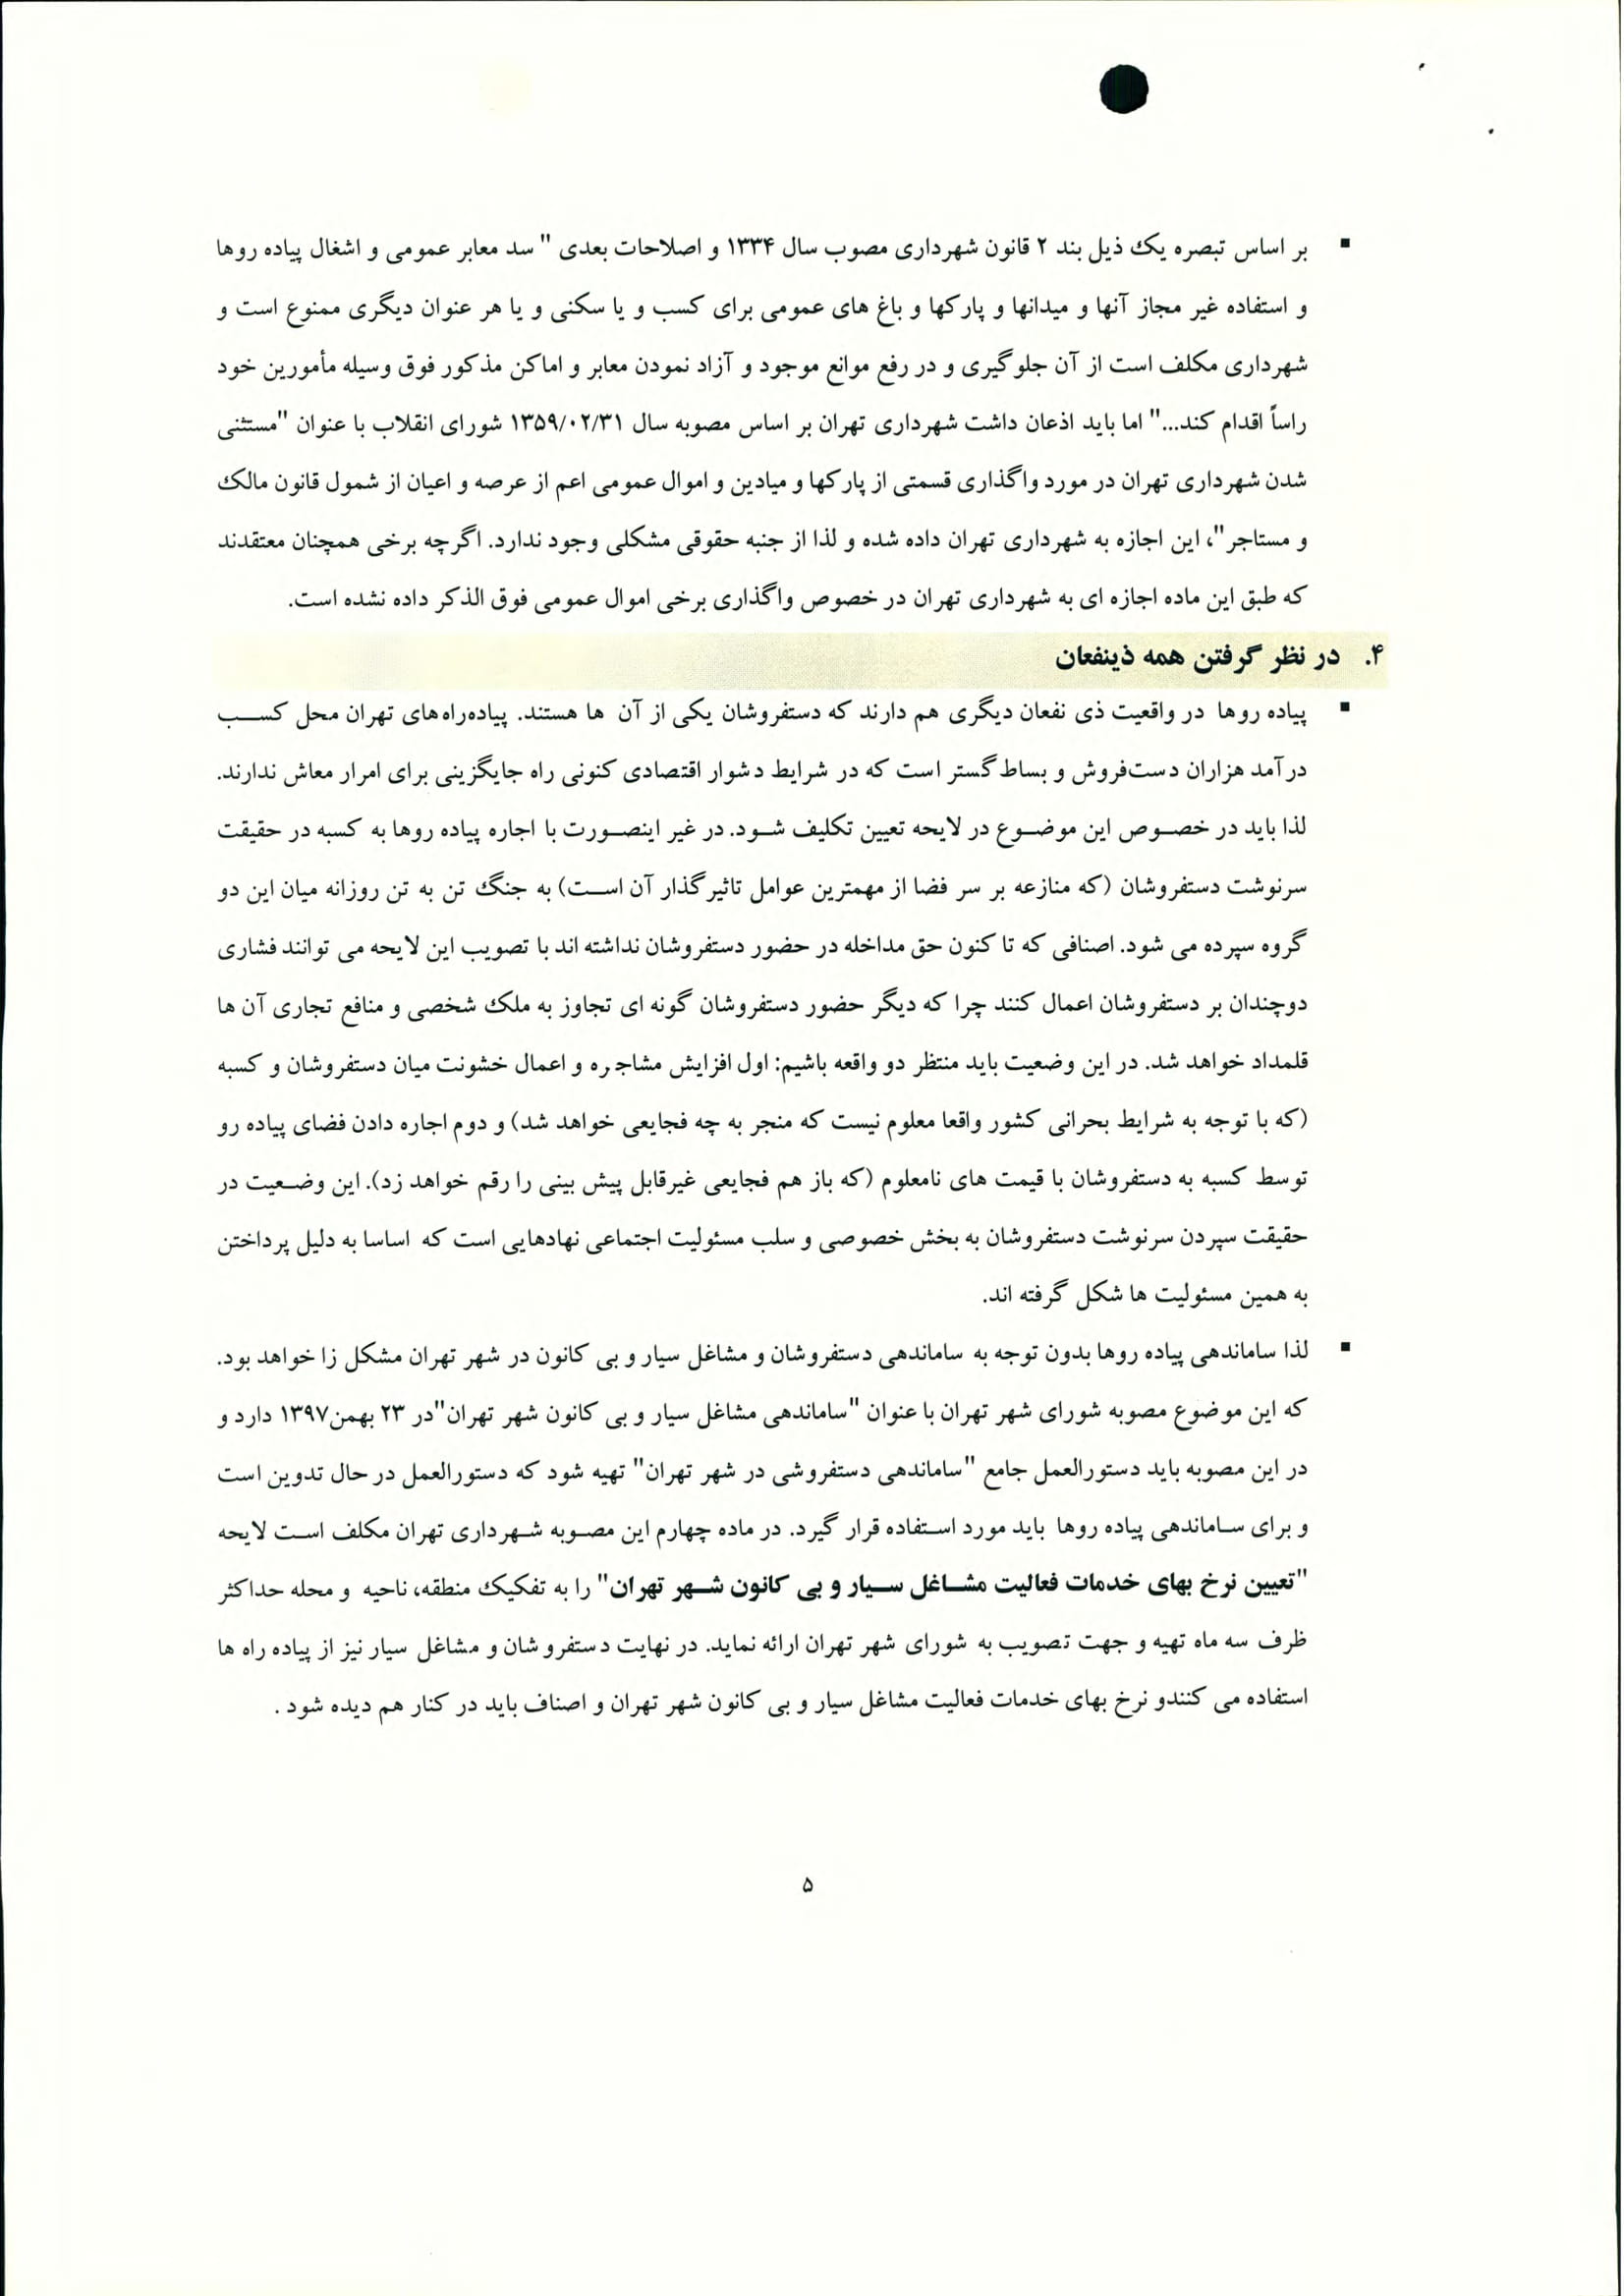 ▪ بر اساس تبصره یک ذیل بند ۲ قانون شهرداری مصوب سال ۱۳۳۴ و اصلاحات بعدی " سد معابر عمومی و اشغال پیاده روها
و استفاده غیر مجاز آنها و میدانها و پارکها و باغ های عمومی برای کسب و یا سکنی و یا هر عنوان دیگری ممنوع است و
شهرداری مکلف است از آن جلوگیری و در رفع موانع موجود و آزاد نمودن معابر و اماکن مذکور فوق وسیله مأمورین خود
راساً اقدام کند..." اما باید اذعان داشت شهرداری تهران بر اساس مصوبه سال ۱۳۵۹/۰۲/۳۱ شورای انقلاب با عنوان "مستثنی
شدن شهرداری تهران در مورد واگذاری قسمتی از پارکها و میادین و اموال عمومی اعم از عرصه و اعیان از شمول قانون مالک
و مستاجر"، این اجازه به شهرداری تهران داده شده و لذا از جنبه حقوقی مشکلی وجود ندارد. اگرچه برخی همچنان معتقدند
که طبق این ماده اجازه ای به شهرداری تهران در خصوص واگذاری برخی اموال عمومی فوق الذکر داده نشده است.
۴. در نظر گرفتن همه ذینفعان
▪ پیاده روها در واقعیت ذی نفعان دیگری هم دارند که دستفروشان یکی از آن ها هستند. پیاده‌راه‌های تهران محل کسب
درآمد هزاران دست‌فروش و بساط‌گستر است که در شرایط دشوار اقتصادی کنونی راه جایگزینی برای امرار معاش ندارند.
لذا باید در خصوص این موضوع در لایحه تعیین تکلیف شود. در غیر اینصورت با اجاره پیاده روها به کسبه در حقیقت
سرنوشت دستفروشان (که منازعه بر سر فضا از مهمترین عوامل تاثیرگذار آن است) به جنگ تن به تن روزانه میان این دو
گروه سپرده می شود. اصنافی که تا کنون حق مداخله در حضور دستفروشان نداشته اند با تصویب این لایحه می توانند فشاری
دوچندان بر دستفروشان اعمال کنند چرا که دیگر حضور دستفروشان گونه ای تجاوز به ملک شخصی و منافع تجاری آن ها
قلمداد خواهد شد. در این وضعیت باید منتظر دو واقعه باشیم: اول افزایش مشاجره و اعمال خشونت میان دستفروشان و کسبه
(که با توجه به شرایط بحرانی کشور واقعا معلوم نیست که منجر به چه فجایعی خواهد شد) و دوم اجاره دادن فضای پیاده رو
توسط کسبه به دستفروشان با قیمت های نامعلوم (که باز هم فجایعی غیرقابل پیش بینی را رقم خواهد زد). این وضعیت در
حقیقت سپردن سرنوشت دستفروشان به بخش خصوصی و سلب مسئولیت اجتماعی نهادهایی است که اساسا به دلیل پرداختن
به همین مسئولیت ها شکل گرفته اند.
▪ لذا ساماندهی پیاده روها بدون توجه به ساماندهی دستفروشان و مشاغل سیار و بی کانون در شهر تهران مشکل زا خواهد بود.
که این موضوع مصوبه شورای شهر تهران با عنوان "ساماندهی مشاغل سیار و بی کانون شهر تهران"در ۲۳ بهمن۱۳۹۷ دارد و
در این مصوبه باید دستورالعمل جامع "ساماندهی دستفروشی در شهر تهران" تهیه شود که دستورالعمل در حال تدوین است
و برای ساماندهی پیاده روها باید مورد استفاده قرار گیرد. در ماده چهارم این مصوبه شهرداری تهران مکلف است لایحه
"تعیین نرخ بهای خدمات فعالیت مشاغل سیار و بی کانون شهر تهران" را به تفکیک منطقه، ناحیه و محله حداکثر
ظرف سه ماه تهیه و جهت تصویب به شورای شهر تهران ارائه نماید. در نهایت دستفروشان و مشاغل سیار نیز از پیاده راه ها
استفاده می کنندو نرخ بهای خدمات فعالیت مشاغل سیار و بی کانون شهر تهران و اصناف باید در کنار هم دیده شود .
۵